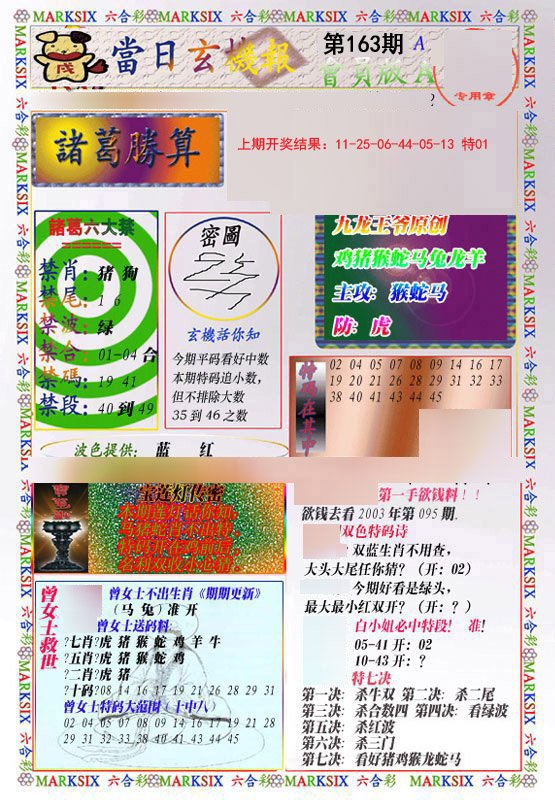 MARKSIX 六合彩 MARKSIX 六合彩 MARKSIX 六合彩 MARKSIX 六合彩
當日玄機報
第163期 A
會員版A
专用章
諸葛勝算
上期开奖结果：11-25-06-44-05-13 特01
諸葛六大禁
禁肖：猪 狗
禁尾：1 6
禁波：绿
禁合：01-04 合
禁碼：19 41
禁段：40 到 49
密圖
玄機話你知
今期平码看好中数
本期特码追小数，
但不排除大数
35 到 46 之数
九龙王爷原创
鸡猪猴蛇马兔龙羊
主攻：猴蛇马
防：虎
特码在其中
02 04 05 07 08 09 14 16 17
19 20 21 26 28 29 31 32 33
38 40 41 43 44 45
波色提供： 蓝 红
宝莲灯传密
名利双收小心猜
曾女士救世
曾女士不出生肖《期期更新》
（马 兔）准 开
曾女士送码料
?七肖?虎 猪 猴 蛇 鸡 羊 牛
?五肖?虎 猪 猴 蛇 鸡
?二肖?虎 猪
?十码?08 14 16 17 19 21 26 28 29 31
曾女士特码大范围（十中八）
02 04 05 07 08 09 14 16 17 19 20 21 28
29 31 32 33 38 40 41 43 44 45
第一手欲钱料！！
欲钱去看 2003 年第 095 期.
双色特码诗
：双蓝生肖不用查，
大头大尾任你猜？（开：02）
今期好看是绿头，
最大最小红双开？（开：？）
白小姐必中特段！ 准！
05-41 开：02
10-43 开：？
特七决
第一决：杀牛双 第二决：杀二尾
第三决：杀合数四 第四决：看绿波
第五决：杀红波
第六决：杀三门
第七决：看好猪鸡猴龙蛇马
MARKSIX 六合彩 MARKSIX 六合彩 MARKSIX 六合彩 MARKSIX 六合彩